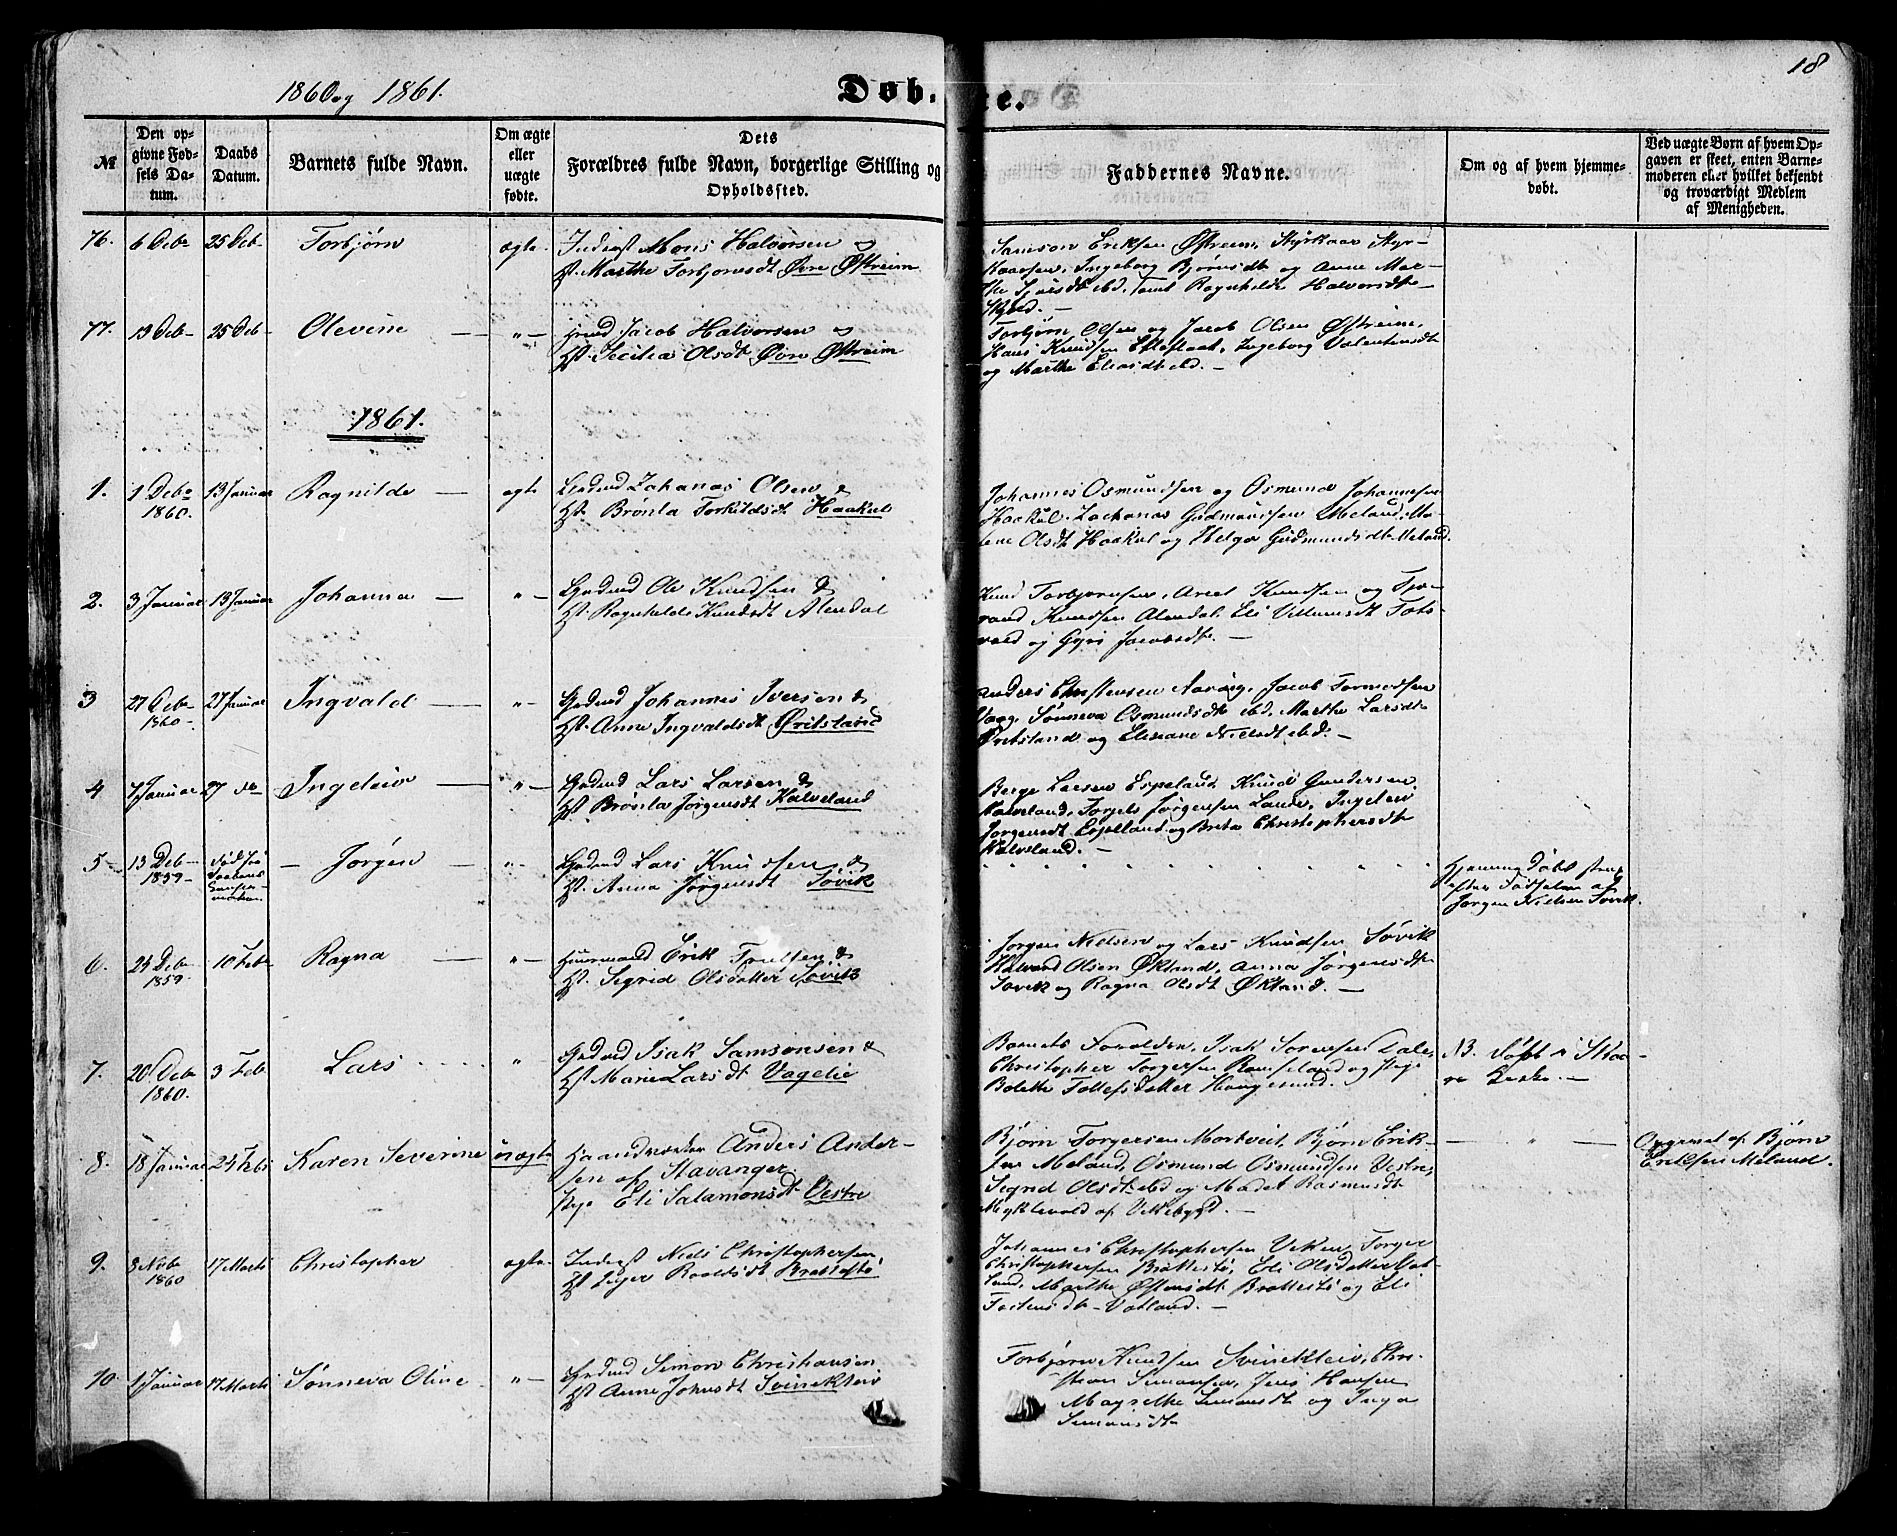 1860 og 1861.
Døb
te.
18
№
Den opgivne Fødsels Datum.
Daabs Datum.
Barnets fulde Navn.
Om ægte eller uægte fødte.
Dets
Forældres fulde Navn, borgerlige Stilling og
Opholdssted.
Faddernes Navne.
Om og af hvem hjemmedøbt.
Ved uægte Børn af hvem Opgaven er skeet, enten Barnemoderen eller hvilket bekjendt og troværdigt Medlem af Menigheden.
76. 6 Debr 25 Deb Torbjørn ægte Inderst Mons Halvorsen &
Hst. Marthe Torbjørnsdt Øvre Østreim
Samson Eriksen Østreim, Styrkaar Styr-
kaarsen, Ingeborg Bjørnsdt og Anne Mar-
the ibd, samt Ragnhilde Halvorsdt
77. 13 Deb 25 Deb Olevine — " — Jacob Halvorsen &
Hst. Secilia Olsdt Øvre Østreim
Torbjørn Olsen og Jacob Olsen Østreim,
Hans Knudsen Ingeborg Valentinsdt
og Marthe Eliasdt ibd. —
1861.
1. 1 Debr 1860. 13 Januar Ragnilde — ægte Gndmd Johanas Olsen &
Hst. Brønla Torkildsdt Haakul
Johannes Osmundsen og Osmund Johannesen
Haakul, Zacharias Gudmundsen Meland, Ma-
lene Olsdt Haakul og Helga Gudmundsdt Meland.
2. 3 Januar 13 Januar Johanna — " — Gndmd Ole Knudsen &
Hst. Ragnhilde Knudsdt Alendal
Knud Torbjørnsen, Knudsen og
Knudsen Alendal, Eli Villumsdt
og Jacobsdt. —
3 27 Deb 1860 27 Januar Ingvald — " — Gndmd Johannes Iversen &
Hst. Anne Ingvaldsdt Qvitsland
Anders Christensen Aarvig, Jacob Tormodsen
Vaag, Sønneva Osmundsdt ibd, Marthe Larsdt
Qvitsland og Nielsdt ibd. —
4 7 Januar 27 do Ingeleiv — " — Gndmd Lars Larsen &
Hst. Brønla Jørgensdt Kalveland
Berge Larsen Espeland, Knud Gundersen
Kalveland, Torgels Jørgensen Lande, Ingeleiv
Jørgensdt Espeland og Brita Christophersdt
Kalveland. —
5 13 Deb 1859 — Jørgen — " — Gndmd Lars Knudsen &
Hst. Anna Jørgensdt Søvik
Hjemmedøbt strax
efter Fødselen af
Jørgen Nielsen Søvik.
6. 24 Deb 1859 10 Febr Ragna — " — Huusmand Erik &
Hst. Segrid Olsdatter Søvik
Jørgen Nielsen og Lars Knudsen Søvik
Halvard Olsen Økland, Anna Jørgensdt
Søvik og Ragna Olsdt Økland. —
7. 20 Deb 1860. 3 Feb Lars " Gndmd Isak Samsonsen &
Hst Marie Larsdt Vagelie
Barnets Forældre, Isak Sørensen Dale,
Christopher Torgersen Ramseland og Pige
Bolethe Tollefsdatter Haugesund.
NB. Døbt i Skaa-
re Kirke. —
8. 18 Januar 24 Febr Karen Severine uægte Haandværker Anders Ander-
sen af Stavanger.
Pige Eli Salamonsdt Vestre
Bjørn Torgersen Mortveit, Bjørn Erik-
sen Meland, Osmund Osmundsen Vestre,
Segrid Olsdt ibd og Madel Rasmusdt
Myklevold af Vikebygd. —
— " —
Opgivet af Bjørn
Eriksen Meland.
9. 3 Nobr 1860 17 Marts Christopher ægte Inderst Niels Christophersen,
Hst. Inger Roaldsdt Brattestø
Johannes Christophersen Viken, Torger
Christophersen Brattestø, Eli Olsdatter Vat-
land, Marthe Østensdt Brattestø og Eli
Tostensdt Vatland. —
10 1 Januar 17 Marts Sønneva Oline — " — Gndmd Simon Christiansen
Hst. Anne Johnsdt Svinekleiv
Torbjørn Knudsen Svinekleiv, Chri-
stian Simonsen, Jens Hansen
Magrethe Simonsdt og Inga
Simonsdt